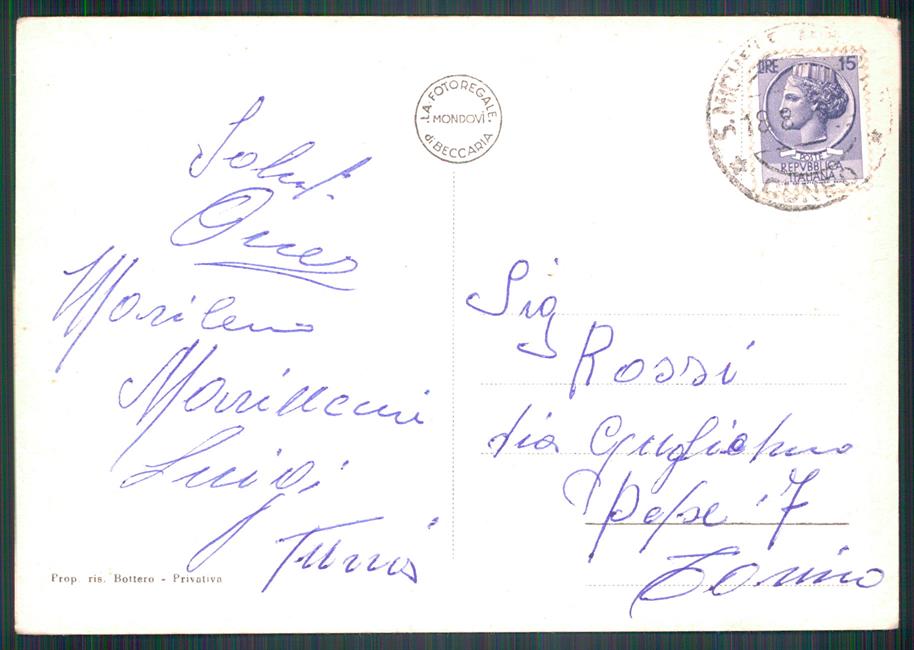 LA FOTOREGALE
MONDOVÌ
di BECCARIA
LIRE 15
POSTE
REPVBBLICA
ITALIANA
S. MICHELE
CUNEO
18
Saluti
Marilena
Luigi
Prop. ris. Bottero - Privativa
Sig
Rossi
Via Guglielmo
Pepe 7
Torino